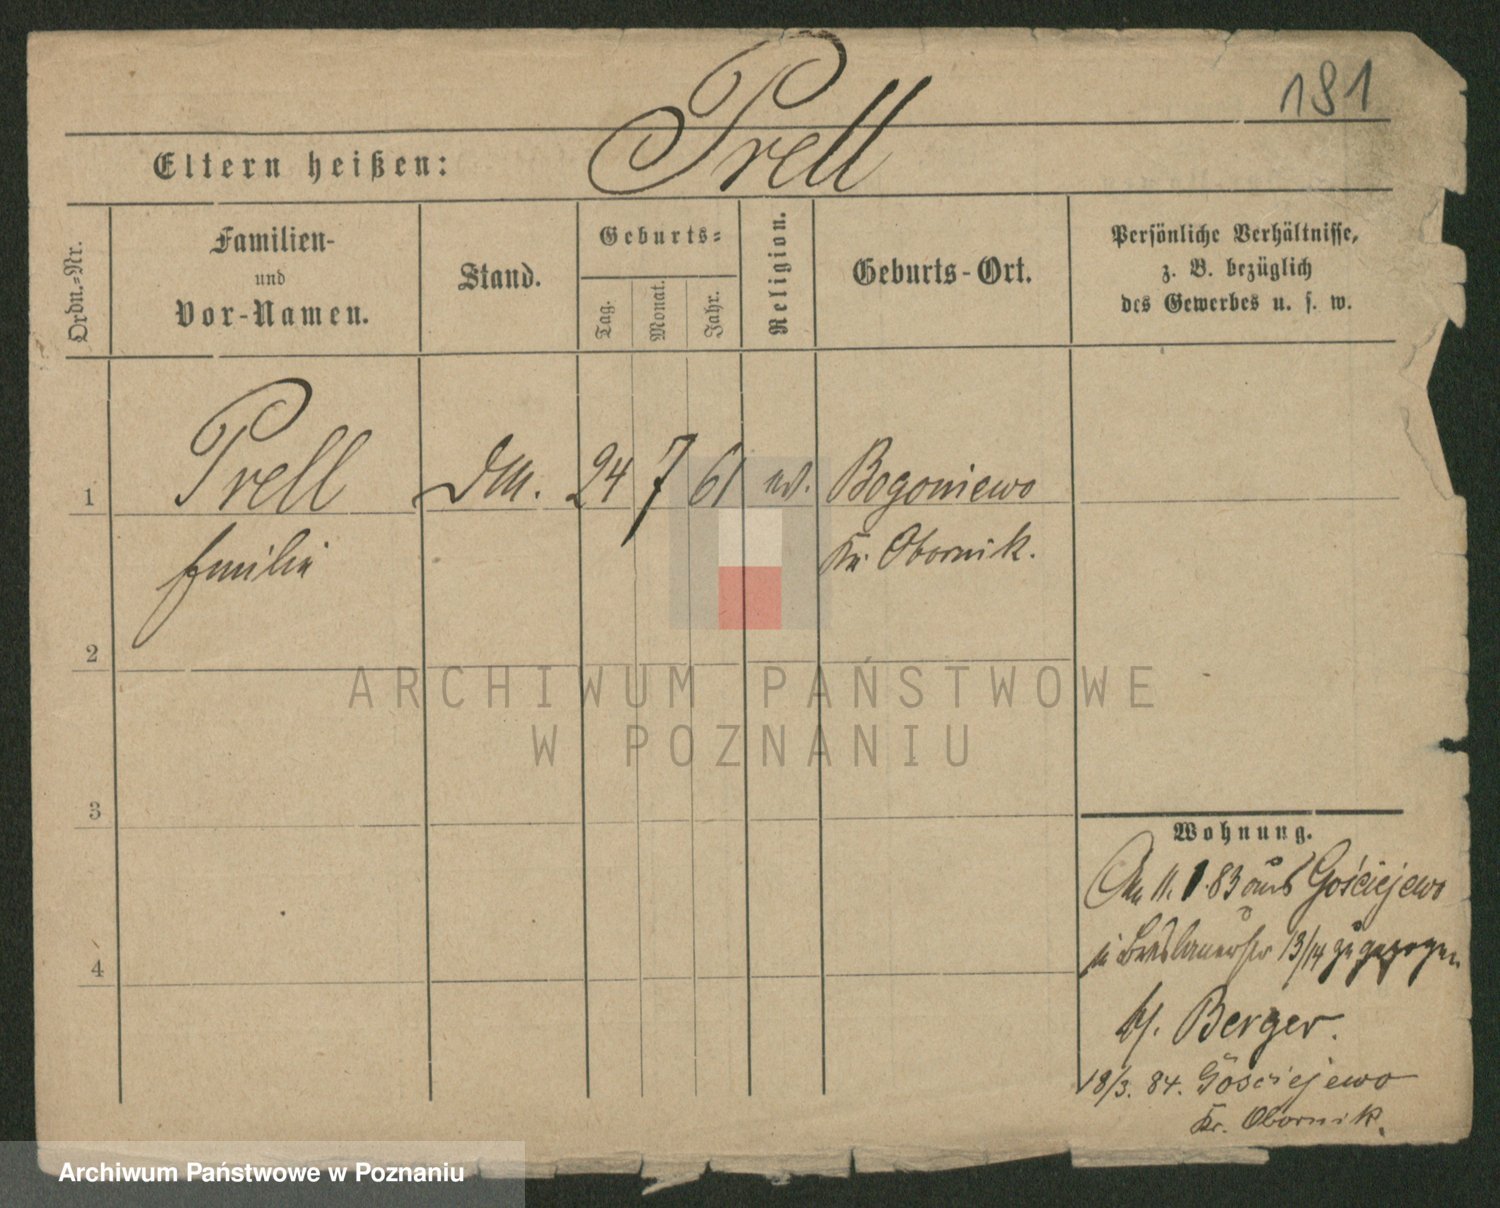 181
Prell
Eltern heißen:
Ordn.-Nr.
Familien-
und
Vor-Namen.
Stand.
Geburts-
Tag.
Monat.
Jahr.
Religion.
Geburts-Ort.
Persönliche Verhältnisse,
z. B. bezüglich
des Gewerbes u. s. w.
1
Prell 24 7 61 Bogoniewo
Emilie Kr. Obornik.
2
ARCHIWUM PAŃSTWOWE
W POZNANIU
3
Wohnung.
11. 1. 83 aus Gościejewo
Breslauerstr 13/14 zugezogen
b/. Berger.
4
18/3. 84. Gościejewo
Kr. Obornik.
Archiwum Państwowe w Poznaniu